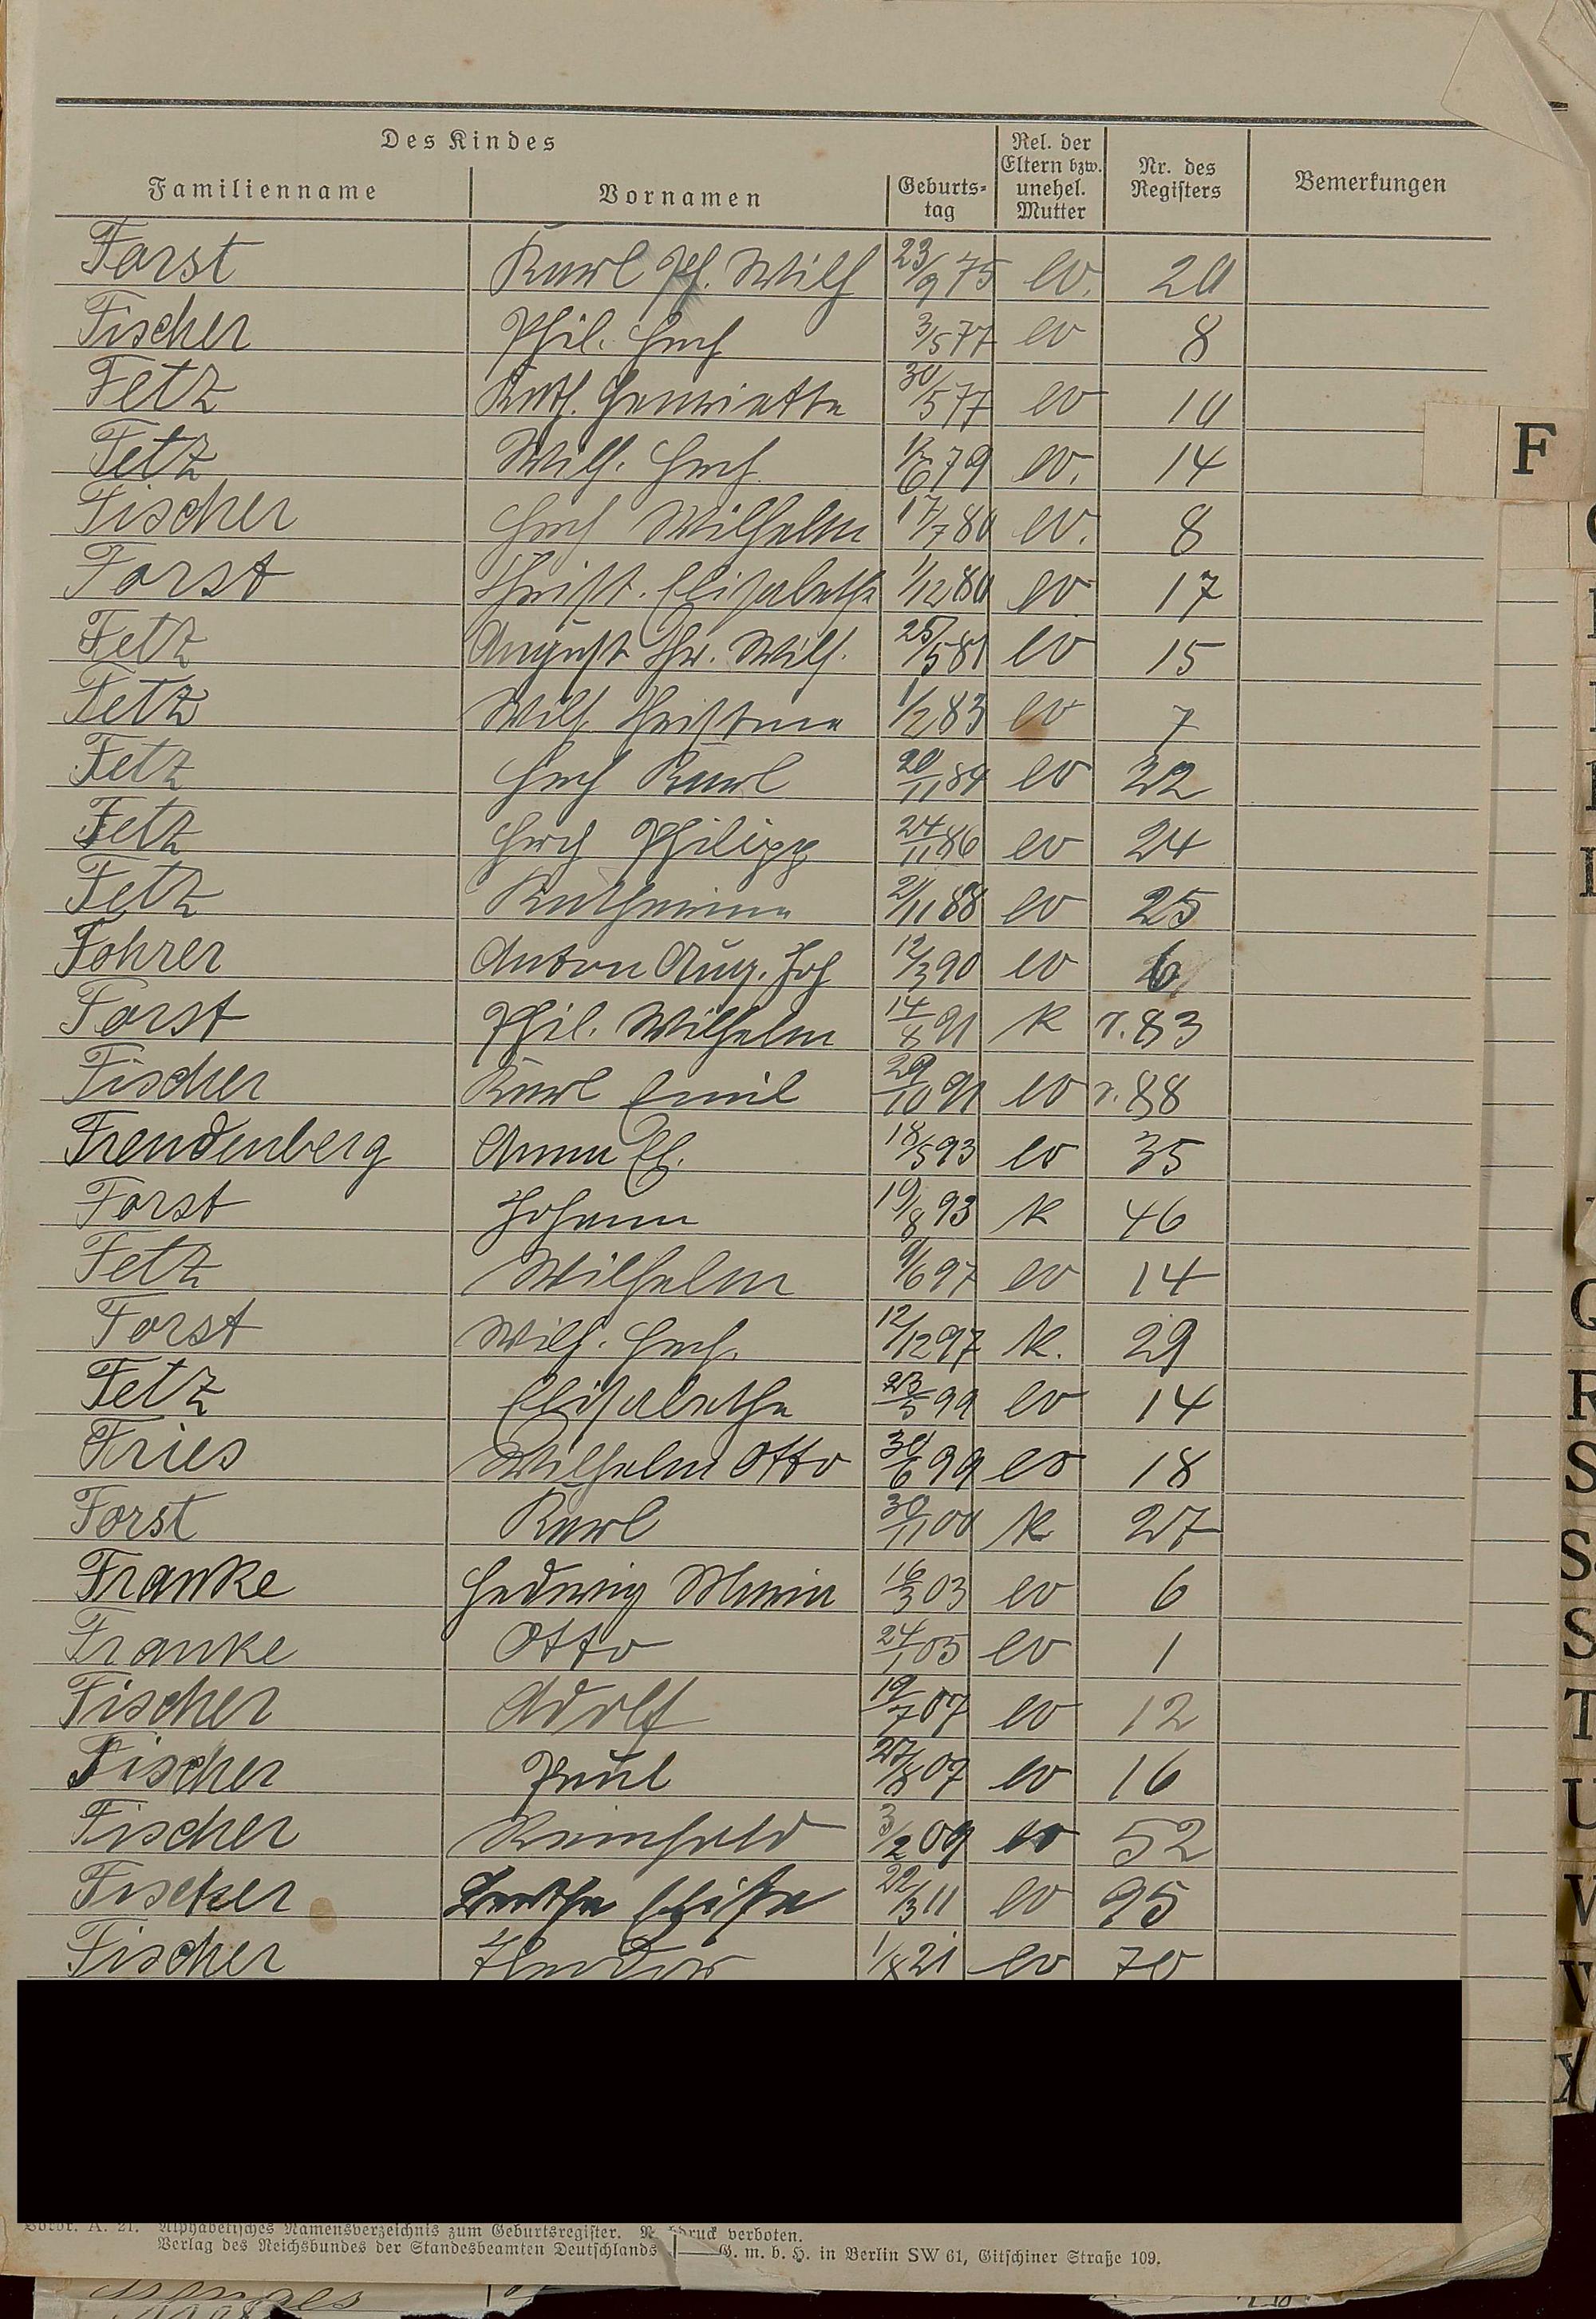 Des Kindes
Familienname Vornamen Geburts-tag Rel. der Eltern bzw. unehel. Mutter Nr. des Registers Bemerkungen
Forst Karl Ph. Wilh 23/9 75 ev. 20
Fischer Phil. Hrch 3/5 77 ev 8
Fetz Kath. Henriette 30/5 77 ev 10
Fetz Wilh. Hrch 79 ev. 14
Fischer Hrch Wilhelm 17/7 80 ev. 8
Forst Christ. Elisabetha 1/12 80 ev 17
Fetz August Chr. Wilh. 25/5 81 ev 15
Fetz Wilh. Christina 1/2 83 ev 7
Fetz Hrch Karl 20/11 84 ev 22
Fetz Hrch Philipp 24/11 86 ev 24
Fetz Katharina 21/11 88 ev 25
Fohrer Anton Aug. Joh 12/3 90 ev 6
Forst Phil. Wilhelm 14/8 91 K r. 83
Fischer Karl Emil 29/10 91 ev r. 88
Freudenberg Anna El. 18/5 93 ev 35
Forst Johann 19/8 93 K 46
Fetz Wilhelm 9/6 97 ev 14
Forst Wilh. Hrch. 12/12 97 K. 29
Fetz Elisabetha 23/5 99 ev 14
Fries Wilhelm Otto 30/6 99 ev 18
Forst Karl 30/11 00 K 27
Franke Hedwig Maria 16/3 03 ev 6
Franke Otto 24/1 05 ev 1
Fischer Adolf 19/7 07 ev 12
Fischer Paul 27/8 07 ev 16
Fischer Reinhold 3/2 09 ev 52
Fischer Bertha Elisa 22/3 11 ev 95
Fischer Theodor 1/8 21 ev 70
F
Vordr. A. 21. Alphabetisches Namensverzeichnis zum Geburtsregister. druck verboten.
Verlag des Reichsbundes der Standesbeamten Deutschlands G. m. b. H. in Berlin SW 61, Gitschiner Straße 109.